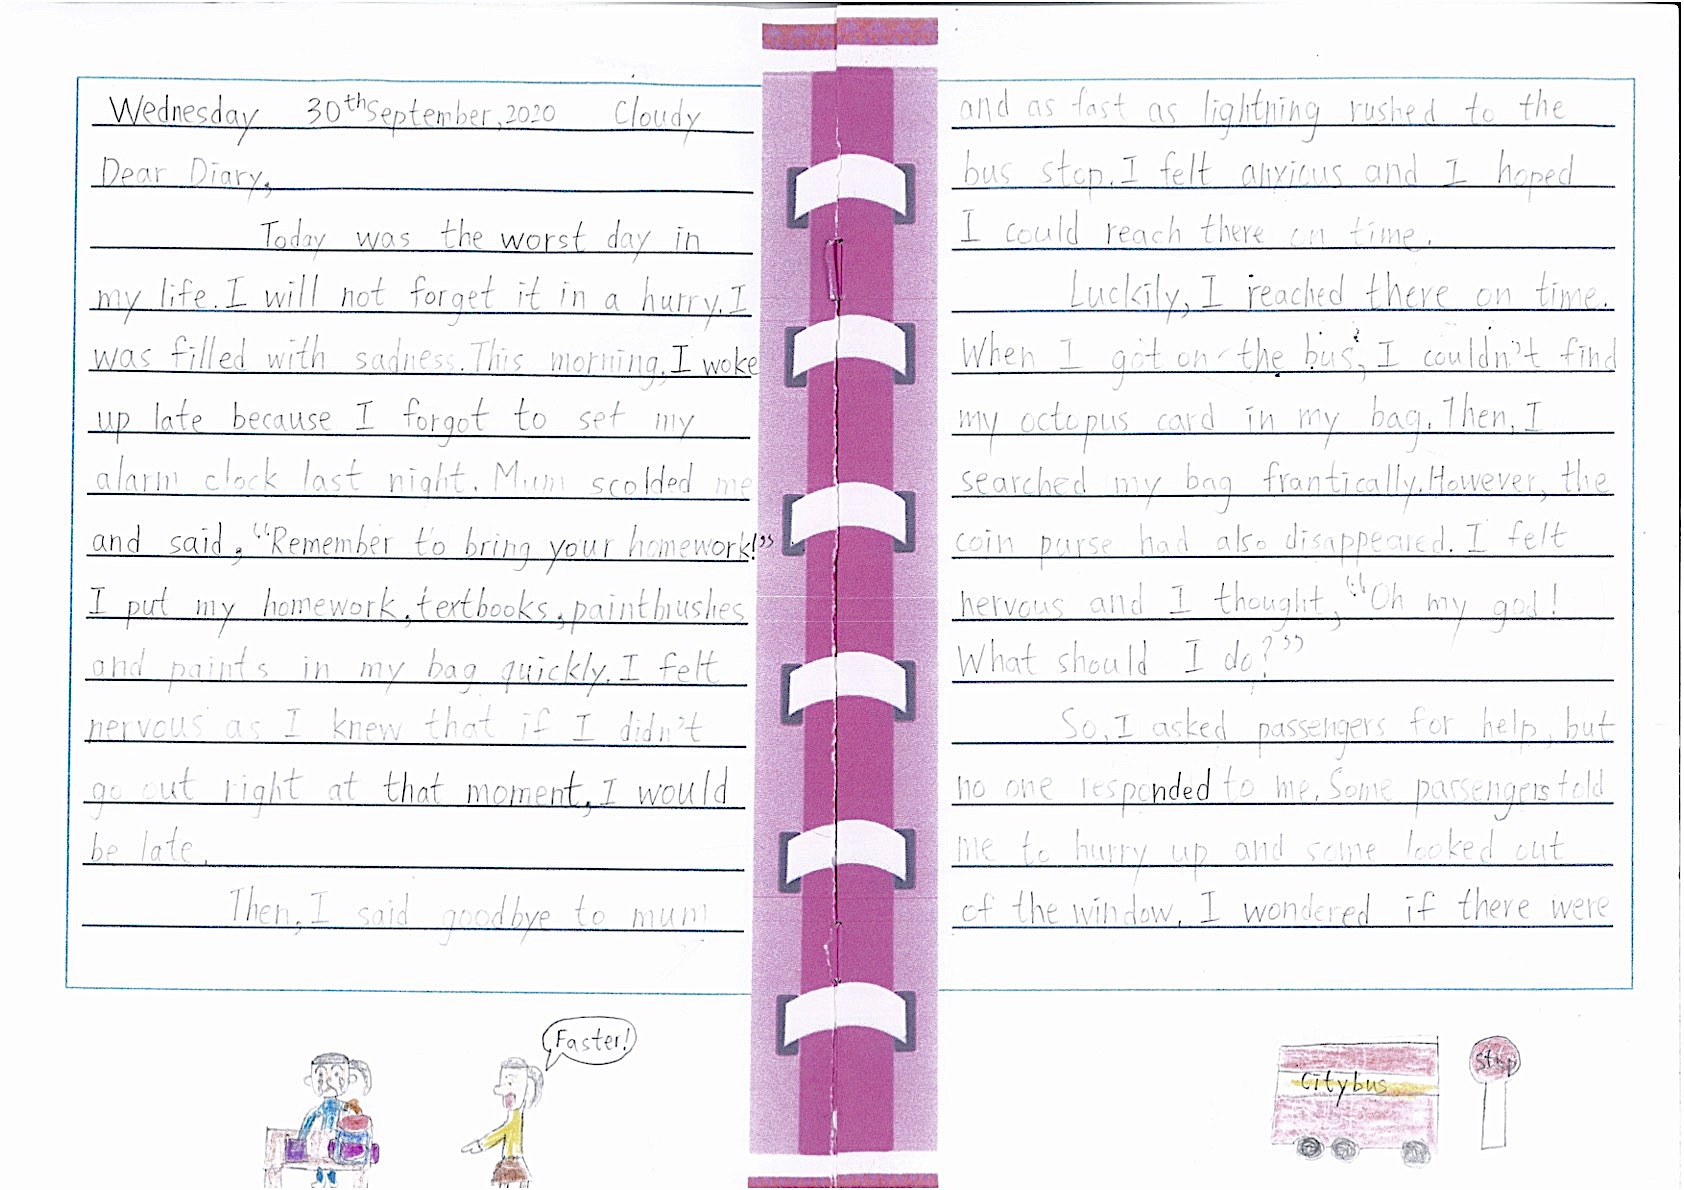 Wednesday 30th September, 2020 Cloudy
Dear Diary,
Today was the worst day in
my life. I will not forget it in a hurry. I
was filled with sadness. This morning, I woke
up late because I forgot to set my
alarm clock last night. Mum scolded me
and said, “Remember to bring your homework!”
I put my homework, textbooks, paintbrushes
and paints in my bag quickly. I felt
nervous as I knew that if I didn't
go out right at that moment, I would
be late.
Then, I said goodbye to mum
Faster!
and as fast as lightning rushed to the
bus stop. I felt anxious and I hoped
I could reach there on time.
Luckily, I reached there on time.
When I got on the bus, I couldn't find
my octopus card in my bag. Then, I
searched my bag frantically. However, the
coin purse had also disappeared. I felt
nervous and I thought, “Oh my god!
What should I do?”
So, I asked passengers for help, but
no one responded to me. Some passengers told
me to hurry up and some looked out
of the window. I wondered if there were
Citybus
Stop